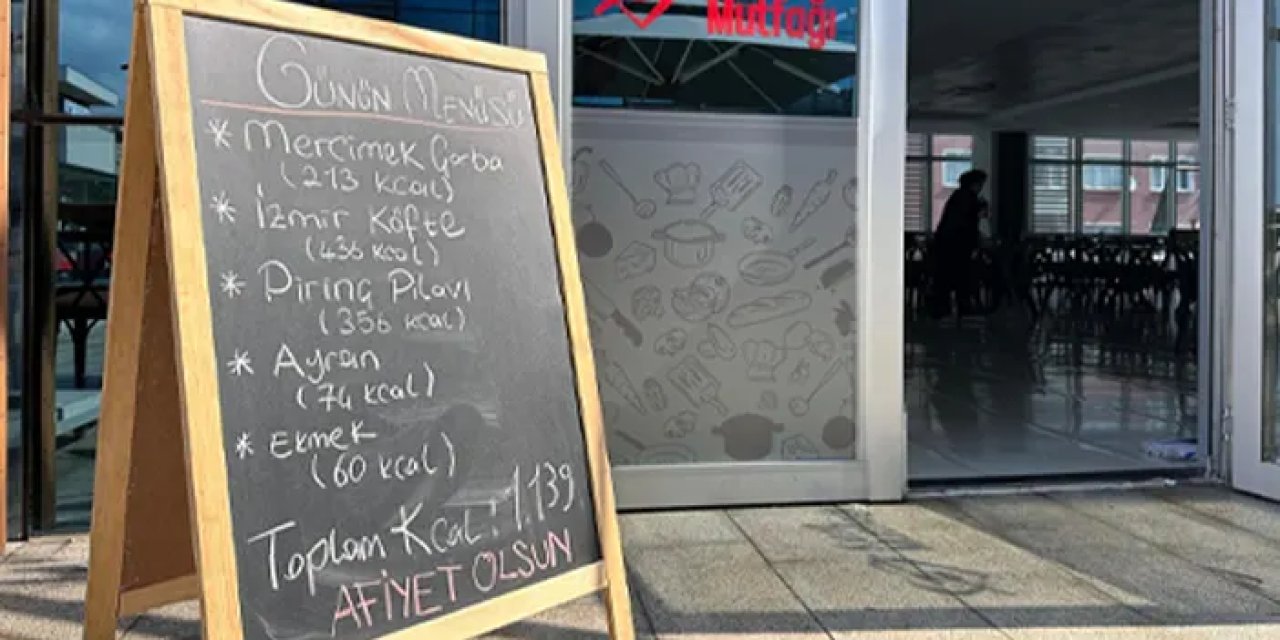 Mutfağı
GÜNÜN MENÜSÜ
* Mercimek Çorba
(213 kcal)
* İzmir Köfte
(436 kcal)
* Pirinç Pilavı
(356 kcal)
* Ayran
(74 kcal)
* Ekmek
(60 kcal)
Toplam Kcal: 1.139
AFİYET OLSUN